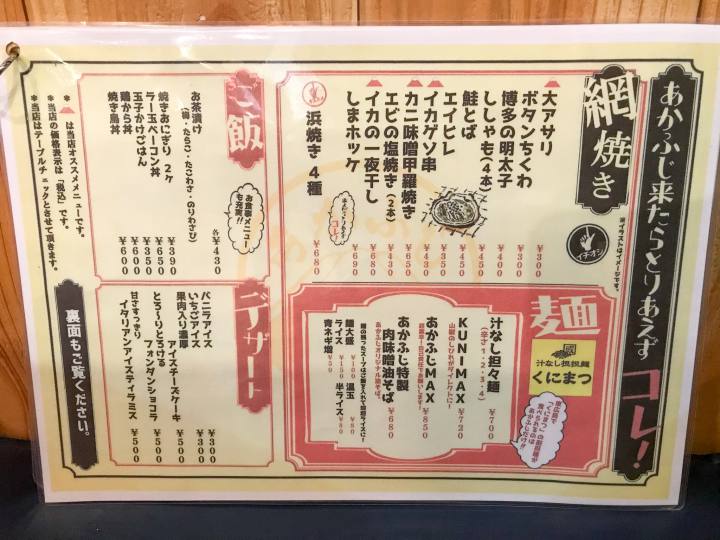 あかふじ来たらとりあえずコレ!
網焼き
※イラストはイメージです。
イチオシ
大アサリ ¥300
ボタンちくわ ¥300
博多の明太子 ¥400
ししゃも(4本) ¥450
鮭とば ¥450
エイヒレ ¥450
イカゲソ串 ¥430
カニ味噌甲羅焼き ¥650
エビの塩焼き(2本) ¥430
イカの一夜干し ¥680
しまホッケ ¥690
浜焼き 4種 ¥680
コレ!
麺
汁なし担担麺
くにまつ
東広島で
「くにまつ」の担担麺が
食べられるのは
あかふじだけ!!
汁なし担々麺 ¥700
(辛さ1・2・3・4)
KUNIMAX ¥730
山椒のしびれがダイレクトに!
あかふじMAX ¥850
あかふじ特製
肉味噌油そば ¥680
あかふじオリジナル油そば。
麺の残ったスープはご飯を入れて担担ライスに!
麺大盛 ¥100
温玉 ¥80
ライス ¥150
半ライス ¥80
青ネギ増 ¥50
ご飯
お食事メニューも充実!!
お茶漬け 各¥430
(梅・たらこ・たこわさ・のりわさび)
焼きおにぎり 2ヶ ¥390
ラー玉ベーコン丼 ¥650
玉子かけごはん ¥350
鶏から丼 ¥650
焼き鳥丼 ¥600
デザート
バニラアイス ¥300
いちごアイス ¥300
果肉入り濃厚
アイスチーズケーキ ¥500
とろ〜りとろける
フォンダンショコラ ¥500
甘さすっきり
イタリアンアイスティラミス ¥500
※ は当店オススメメニューです。
※当店の価格表示は「税込」です。
※当店はテーブルチェックとさせて頂きます。
裏面もご覧ください。